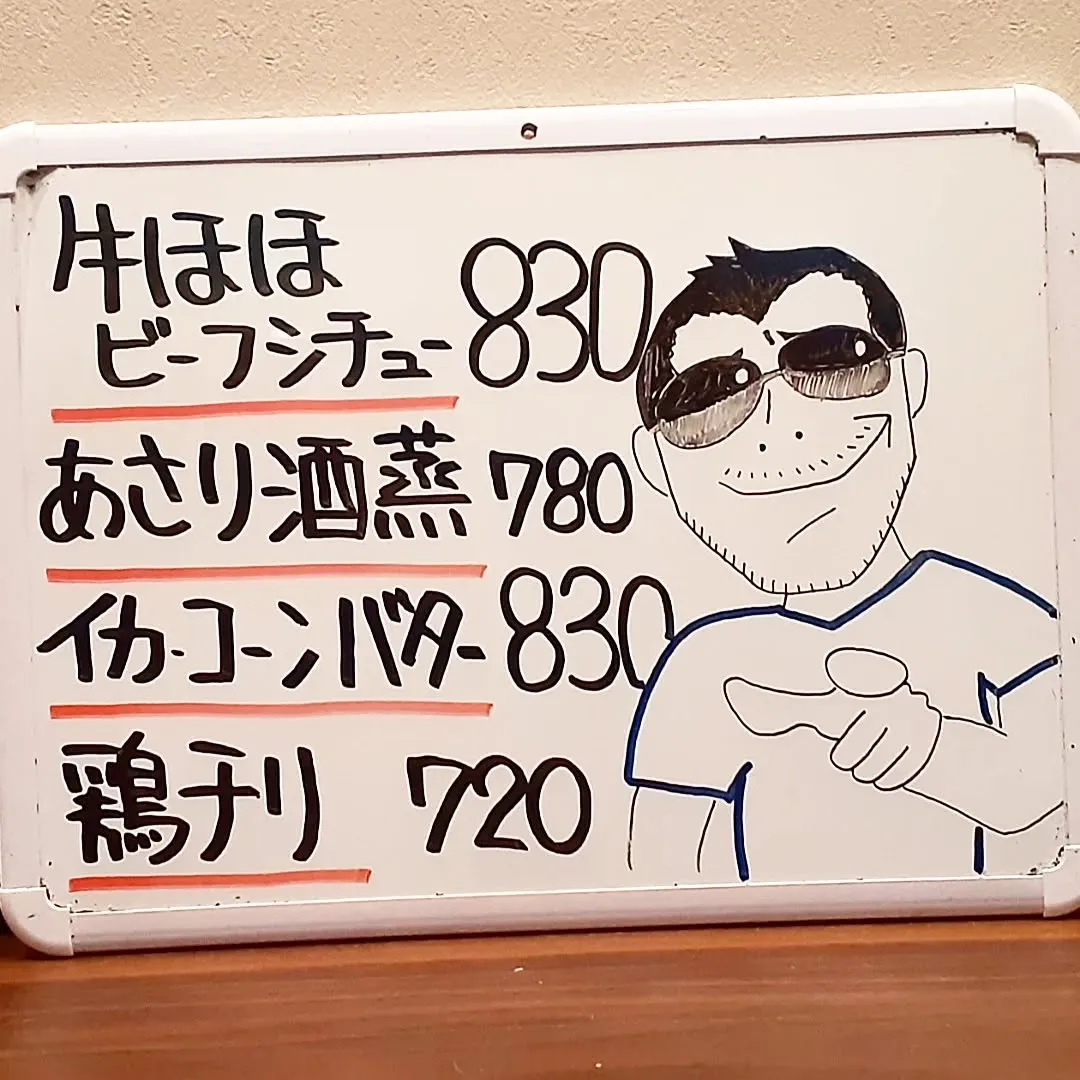 牛ほほ
ビーフシチュー 830
あさり酒蒸 780
イカ・コーンバター 830
鶏チリ 720